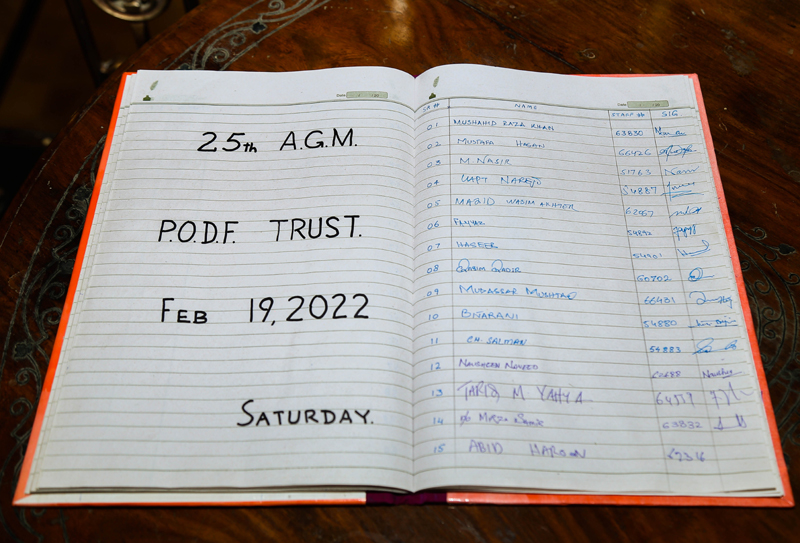 Date:
25th A.G.M.
P.O.D.F. TRUST.
FEB 19, 2022
SATURDAY.
Date:
SR# NAME STAFF No SIG
01 MUSHAHID RAZA KHAN 63830
02 MUSTAFA HASAN 66426
03 M. NASIR 51763
04 CAPT NAREJO 54887
05 MAJID WASIM AKHTER
06 54892
07 HASEEB 54901
08 QASIM QADIR 60702
09 MUDASSAR MUSHTAQ 66431
10 BIJARANI 54880
11 CH. SALMAN 54883
12 NAUSHEEN NAVEED
13 TARIQ M YAHYA
14 63832
15 ABID HAROON